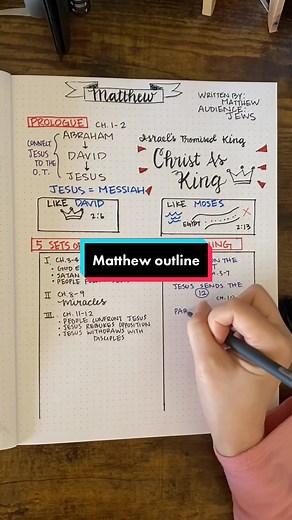 Matthew
WRITTEN BY:
MATTHEW
AUDIENCE:
JEWS
PROLOGUE CH. 1-2
CONNECT
JESUS
TO THE
O.T.
ABRAHAM
DAVID
JESUS
JESUS = MESSIAH
Israel's Promised King
Christ As
King
LIKE DAVID
2:6
LIKE MOSES
EGYPT
2:13
5 SETS
Matthew outline
I CH. 3-4
SATAN
PEOPLE
II CH. 8-9
Miracles
III CH. 11-12
• PEOPLE CONFRONT JESUS
• JESUS REBUKES OPPOSITION
• JESUS WITHDRAWS WITH
DISCIPLES
ON THE
JESUS SENDS THE
12
PAR